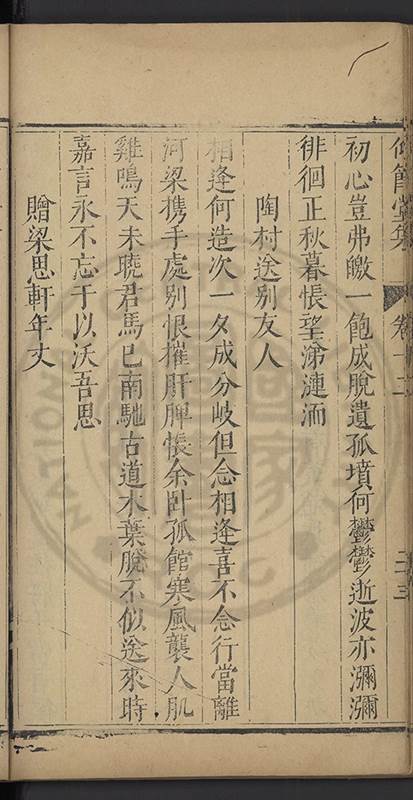 仰節堂集 卷十二 二十三
初心豈弗皦一飽成脫遺孤墳何鬱鬱逝波亦瀰瀰
徘徊正秋暮悵望涕漣洏
陶村送別友人
相逢何造次一夕成分岐但念相逢喜不念行當離
河梁携手處別恨摧肝脾悵余卧孤館寒風襲人肌
雞鳴天未曉君馬已南馳古道木葉脫不似送來時
嘉言永不忘于以沃吾思
贈梁思軒年丈